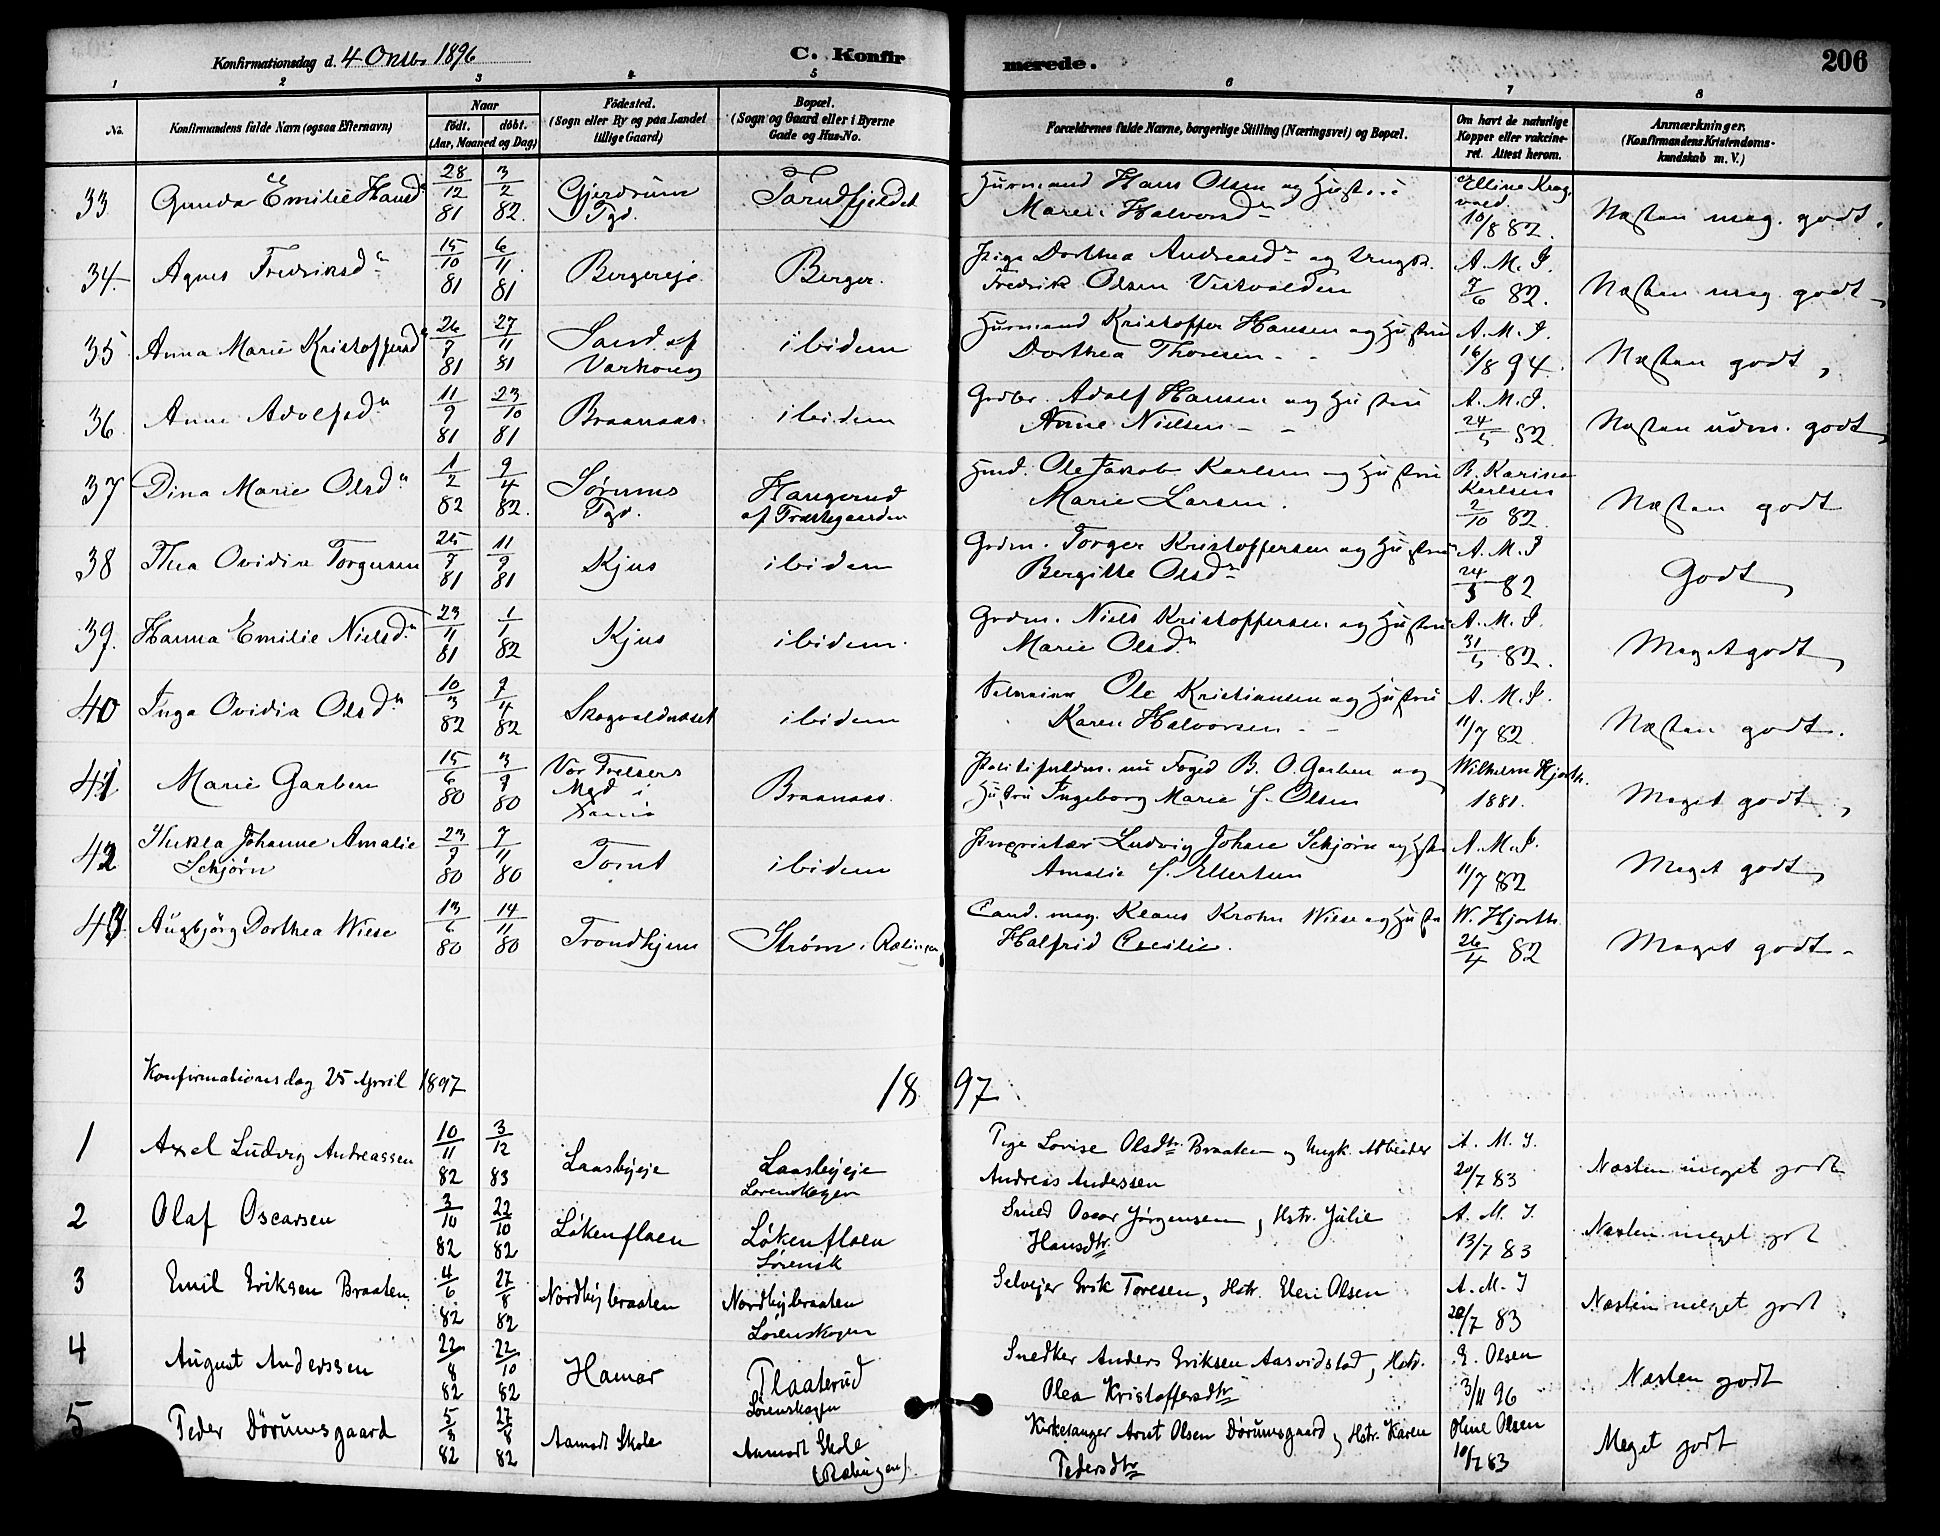 Konfirmationsdag d. 4 Octbr 1896 C. Konfirmerede. 206
1 2 3 4 5 6 7 8
No. Konfirmandens fulde Navn (ogsaa Efternavn) Naar født. døbt. (Aar, Maaned og Dag) Fødested. (Sogn eller By og paa Landet tillige Gaard) Bopæl. (Sogn og Gaard eller i Byerne Gade og Hus-No. Forældrenes fulde Navne, borgerlige Stilling (Næringsvei) og Bopæl. Om havt de naturlige Kopper eller vakcineret. Attest herom. Anmærkninger. (Konfirmandens Kristendomskundskab m. V.)
33 Gunda Emilie Hansdr 28/12 81 3/2 82. Gjerdrum Pgd. Tarudfjeldet Husmand Hans Olsen og Hustru Maren Halvorsdr Elline Krogvold. 10/8 82. Næsten meg. godt.
34 Agnes Fredriksdr 15/10 81 6/11 81 Bergereje Berger. Pige Dorthea Andreasdr og Ungk. Fredrik Olsen Vestvolden A. M. I. 7/6 82. Næsten meg. godt
35 Anna Marie Kristoffersdr 26/7 81 27/11 81 Sand af Varhoug ibidem Husmand Kristoffer Hansen og Hustru Dorthea Thoresen - - A. M. I. 16/8 94. Næsten godt,
36 Anna Adolfsdr 11/9 81 23/10 81 Braanaas. ibidem Grdbr. Adolf Hansen og Hustru Anne Nielsen - - A. M. I. 24/5 82. Næsten udm. godt
37 Dina Marie Olsdr 1/2 82 9/4 82. Sørums Pgd. Haugerud af Præstegaarden Hmd. Ole Jakob Karlsen og Hustru Marie Larsen. B. Karine Karlsen 2/10 82. Næsten godt
38 Thea Ovidia Torgersen 25/7 81 11/9 81 Kjus ibidem Grdm. Torger Kristoffersen og Hustru Bergitte Olsdr A. M. I 24/5 82 Godt
39. Hanna Emilie Nielsdr 23/11 81 1/1 82 Kjus ibidem. Grdm. Niels Kristoffersen og Hustru Marie Olsdr A. M. I. 31/5 82. Meget godt
40 Inga Ovidia Olsdr 10/3 82 9/4 82 Skogvoldnæset ibidem Ole Kristiansen og Hustru Karen Halvorsen - - A. M. I. 11/7 82. Næsten godt.
41 Marie Garben 15/6 80 3/9 80 Vor Frelsers Mgd i Xania Braanaas. Politifuldm. nu Foged B. O. Garben og Hustru Ingeborg Marie f. Olsen Wilhelm Hjorth. 1881. Meget godt,
42 Thekla Johanne Amalie Schjørn 23/9 80 7/11 80 Tomt ibidem Proprietær Ludvig Johan Schjørn og Hstr Amalie f. Ellertsen A. M. I. 11/7 82 Meget godt
43 Augbjørg Dorthea Wiese 13/6 80 14/11 80 Trondhjem Strøm i Rælingen Cand. mag. Klaus Krohn Wiese og Hustru Halfrid Cecilie. W. Hjorth. 26/4 82 Meget godt -
Konfirmationsdag 25 April 1897
1897
1 Axel Ludvig Andreassen 10/11 82 3/12 83 Laasbyeje Laasbyeje Lørenskogen Pige Lovise Olsdtr. Braaten og Ungk. Arbeider Andreas Anderssen A. M. I. 20/7 83 Næsten meget godt
2 Olaf Oscarsen 3/10 82 22/10 82 Løkenflaen Løkenflaen Lørensk Smed Oscar Jørgensen, Hstr. Julie Hansdtr. A. M. I. 13/7 83 Næsten meget godt
3 Emil Eriksen Braaten 4/6 82 27/8 82 Nordbybraaten Nordbybraaten Lørenskogen Selvejer Erik Toresen, Hstr. Eleri Olsen A. M. I 20/7 83 Næsten meget godt
4 August Anderssen 22/8 82 22/10 82 Hamar Flaaterud Lørenskogen Snedker Anders Eriksen Aasvidstad, Hstr. Olea Kristoffersdtr E. Olsen 3/11 96 Næsten godt
5 Peder Dörumsgaard 5/3 82 27/8 82 Aamodt Skole Aamodt Skole (Rælingen). Kirkesanger Arnt Olsen Dörumsgaard og Hstr. Karen Pedersdtr Oline Olsen 10/7 83 Meget godt